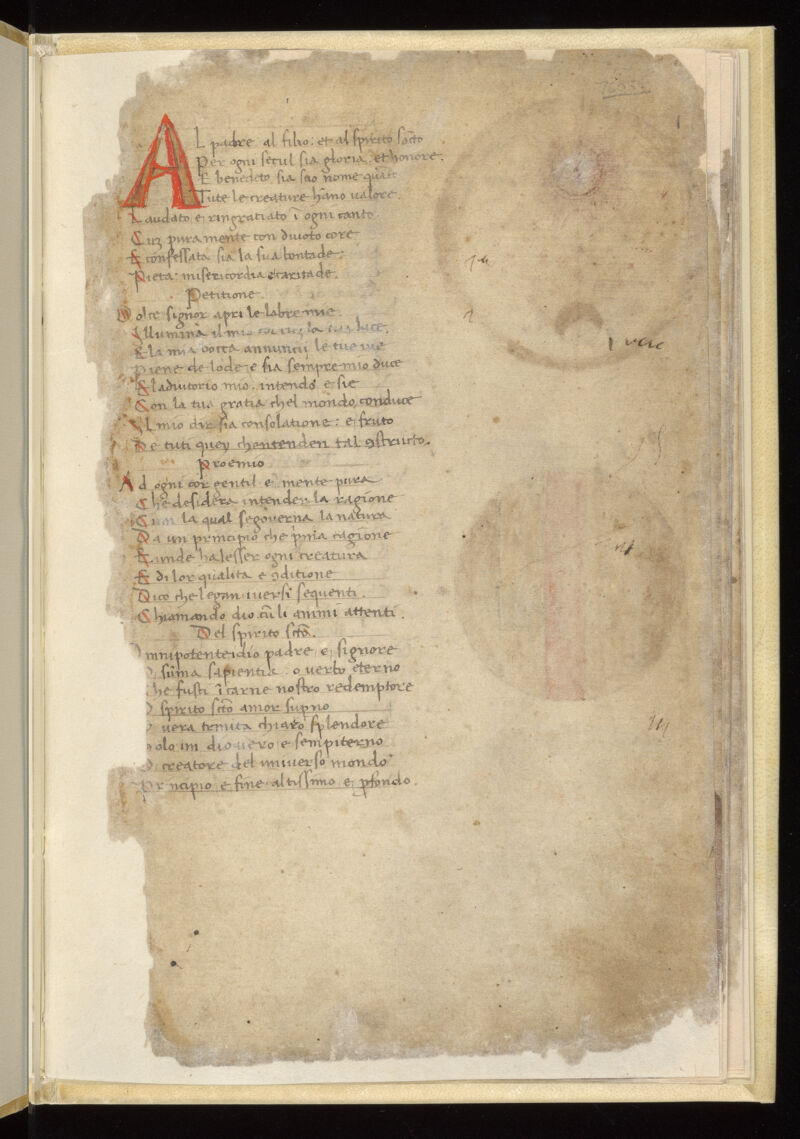 AL padre al filio: et al spirito scto
Per ogni secul sia gloria et honore.
E benedeto sia suo nome quãto
Tute le creature hãno valore.
Laudato e ringratiato ĩ ogni canto
Cuʒ pura mente con divoto core
E confessata sia la sua bontade:
Pieta: misericordia e caritade.
Petitione.
Dolce signor apri le labre mie.
Illumina il mio cor la tua luce.
E la mia bocca annuncii le tue vie
Piene de lode: e sia sempre mio duce
El adiutorio mio. intende e sie
Con la tua gratia chel mondo conduce
Il mio dir sia consolatione: e fruto
De tuti quey chentenden tal 9structo.
Proemio
Ad ogni cor gentil e mente pura
Che desidera intender la ragione
Cum la qual se governa la natura
Da un principio che prima cagione
E unde ha lesser ogni creatura
E di lor qualita e 9ditione
Dico che legan i versi sequenti.
Chiamando dio cũ li animi attenti.
Del spirito scto.
Omnipotente idio padre e signore
O suma sapientia: o verbo eterno
Che fusti ĩ carne nostro redemptore
O spirito scto amor supno
O vera trinita chiaro splendore
Solo un dio vero e sempiterno
O creatore del universo mondo
Principio e fine altissimo e pfondo.